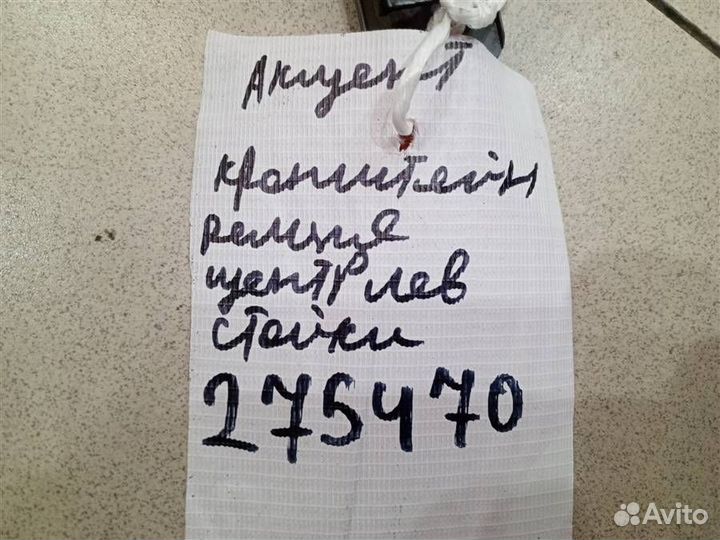 Акцент
кронштейн
ремня
центр лев
стойки
275470
Avito